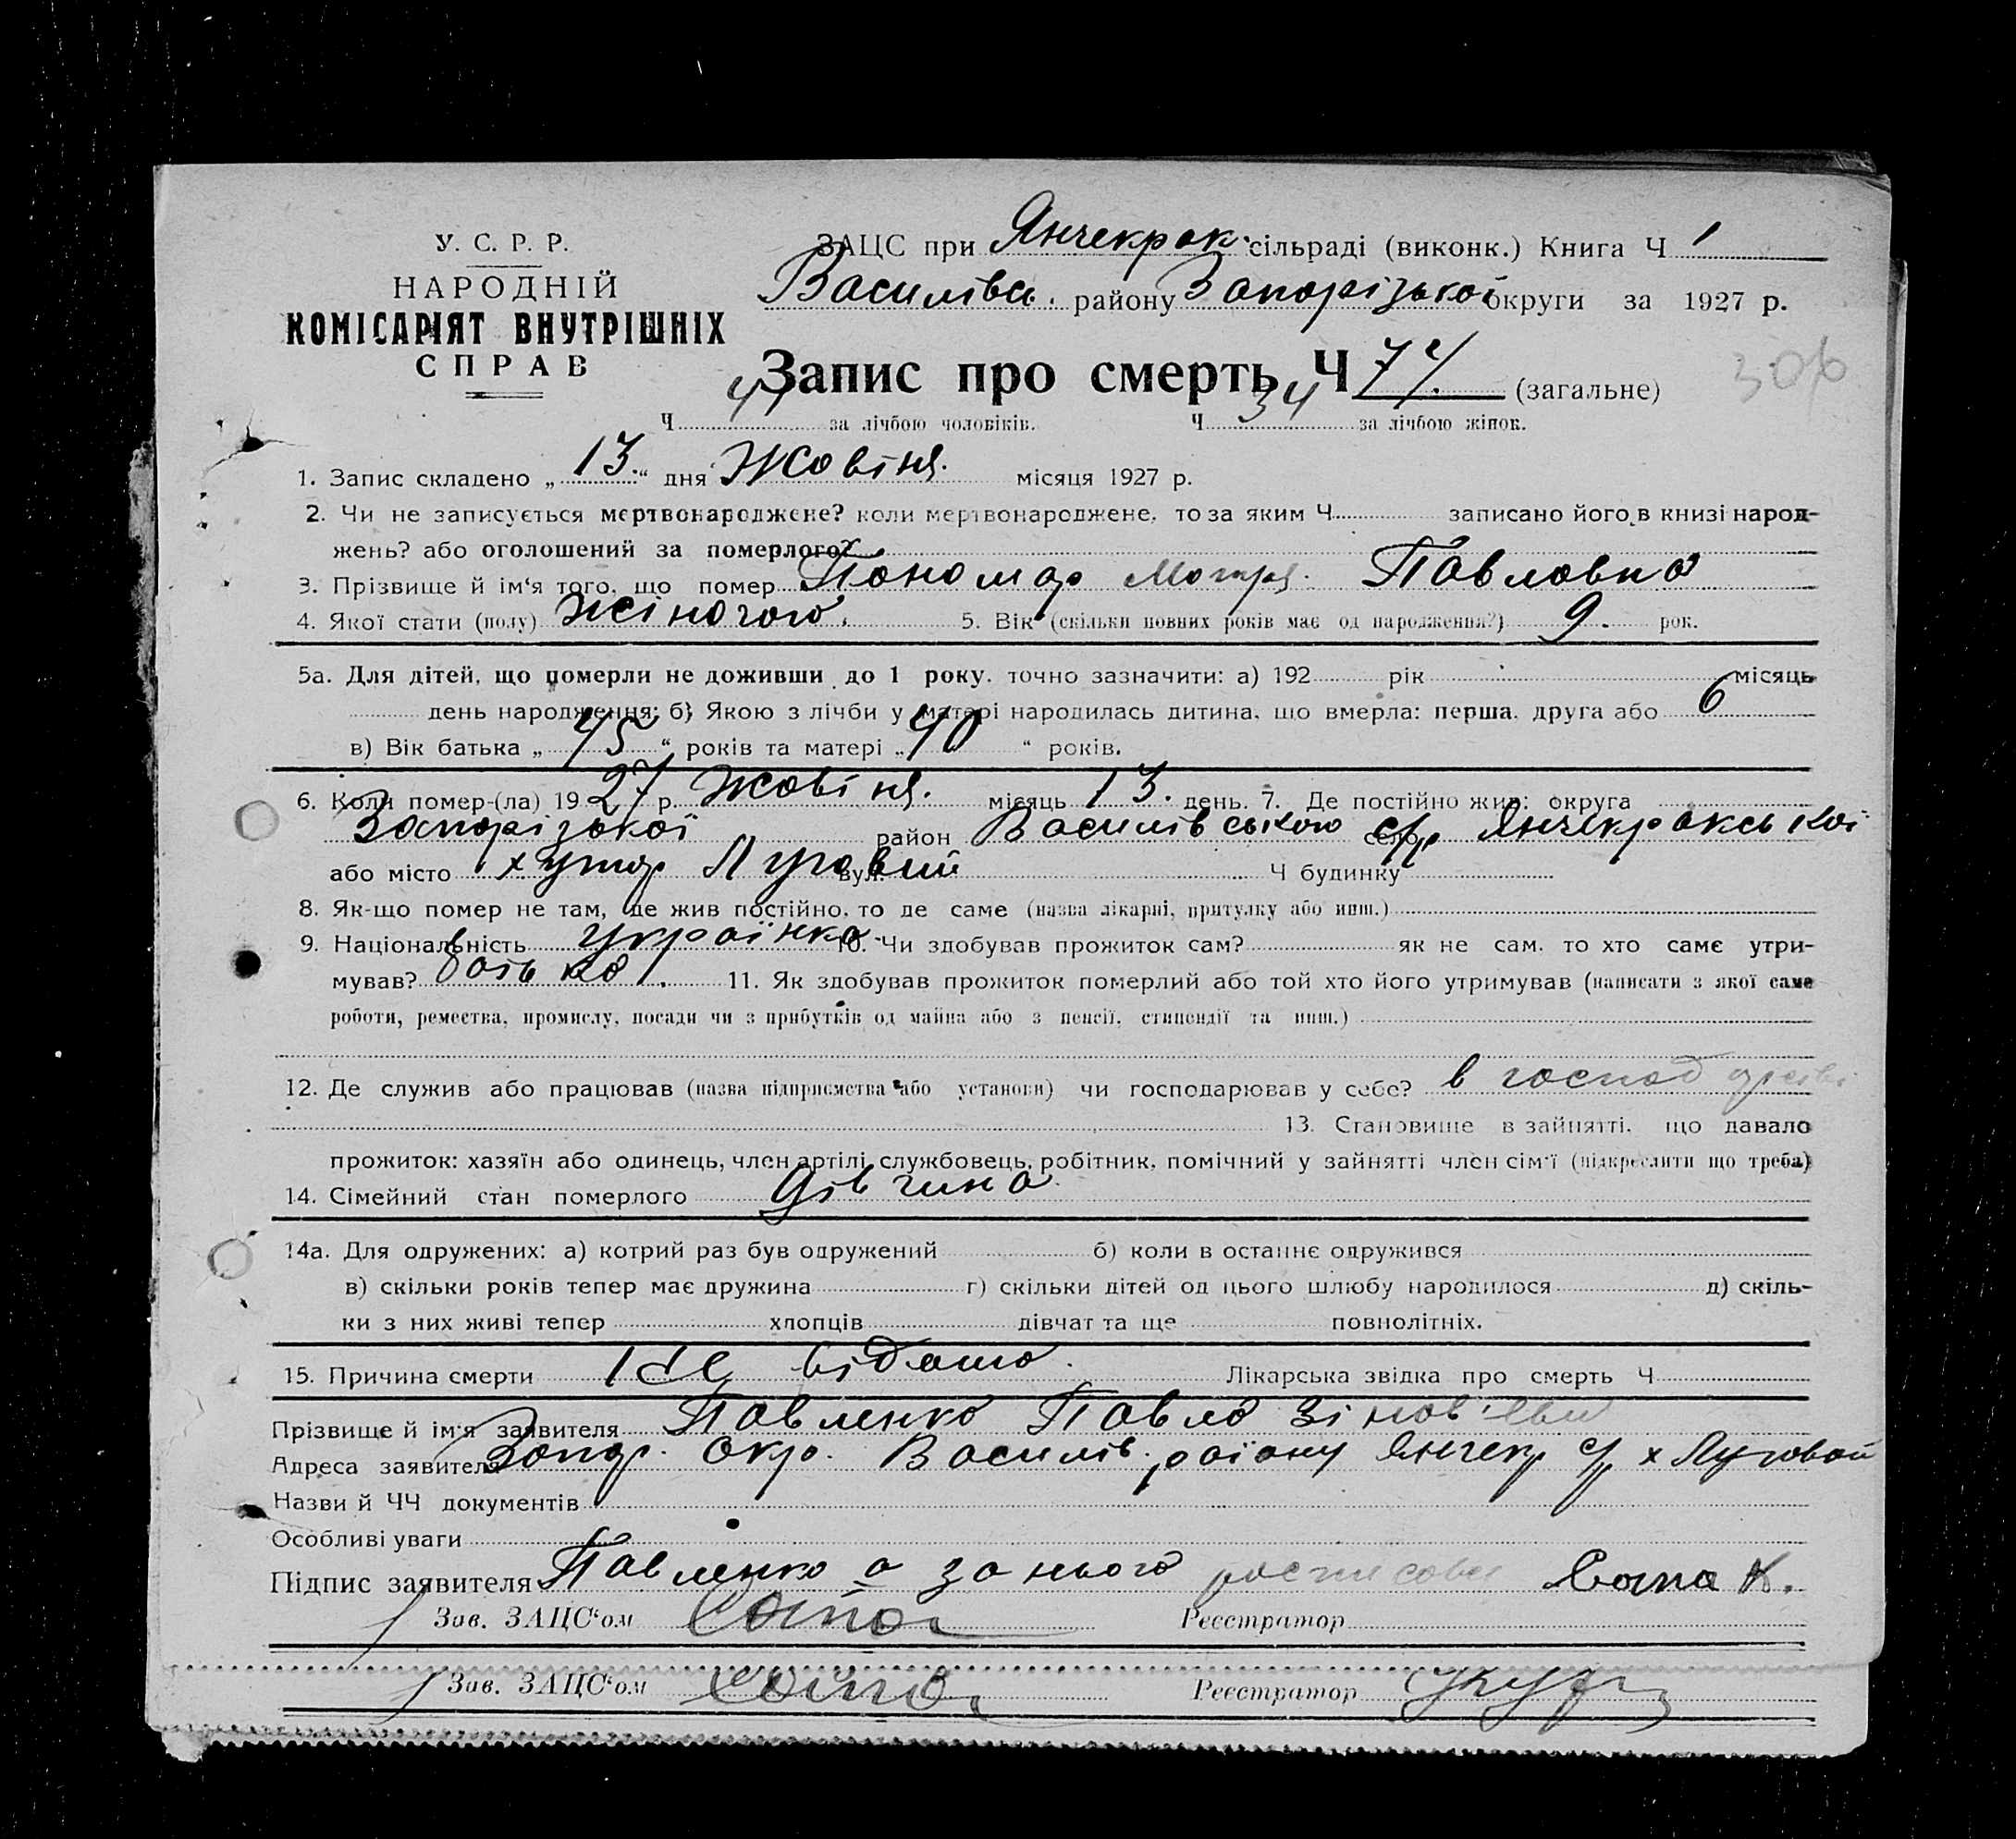 У. С. Р. Р.
НАРОДНІЙ
КОМІСАРІЯТ ВНУТРІШНІХ
СПРАВ
ЗАЦС при Янчекрак. сільраді (виконк.) Книга Ч 1
Василівс. району Запорізької округи за 1927 р.
Запис про смерть Ч 74. (загальне)
306
Ч за лічбою чоловіків. Ч 34 за лічбою жінок.
1. Запис складено „ 13. “ дня Жовтня. місяця 1927 р.
2. Чи не записується мертвонароджене? коли мертвонароджене, то за яким Ч записано його в книзі народ-
жень? або оголошений за померлого?
3. Прізвище й ім‘я того, що помер Пономар Мотря. Павловна
4. Якої стати (полу) жіночого. 5. Вік (скільки повних років має од народження?) 9. рок.
5а. Для дітей, що померли не доживши до 1 року, точно зазначити: а) 192 рік місяць
день народження; б) Якою з лічби у матері народилась дитина, що вмерла: перша, друга або 6
в) Вік батька „ 45 “ років та матері „ 40 “ років.
6. Коли помер-(ла) 19 27 р. Жовтня. місяць 13. день. 7. Де постійно жив: округа
Запорізької район Василівського село с/р Янчекракської
або місто хутор Луговий вул. Ч будинку
8. Як-що помер не там, де жив постійно, то де саме (назва лікарні, притулку або инш.)
9. Національність українка 10. Чи здобував прожиток сам? як не сам, то хто саме утри-
мував? батько. 11. Як здобував прожиток померлий або той хто його утримував (написати з якої саме
роботи, ремества, промислу, посади чи з прибутків од майна або з пенсії, стипендії та инш.)
12. Де служив або працював (назва підприємства або установи) чи господарював у себе? в господарстві
13. Становище в зайнятті, що давало
прожиток: хазяїн або одинець, член артілі, службовець, робітник, помічний у зайнятті член сім‘ї (підкреслити що треба)
14. Сімейний стан померлого дівчина
14а. Для одружених: а) котрий раз був одружений б) коли в останнє одружився
в) скільки років тепер має дружина г) скільки дітей од цього шлюбу народилося д) скіль-
ки з них живі тепер хлопців дівчат та ще повнолітніх.
15. Причина смерти Не відомо. Лікарська звідка про смерть Ч
Прізвище й ім‘я заявителя Павленко Павло Зінов'евич
Адреса заявителя Запор. окр. Василів. району Янчекр с/р х Луговой
Назви й ЧЧ документів
Особливі уваги
Підпис заявителя Павленко а за нього росписався К.
Зав. ЗАЦС‘ом Реєстратор
Зав. ЗАЦС‘ом Реєстратор